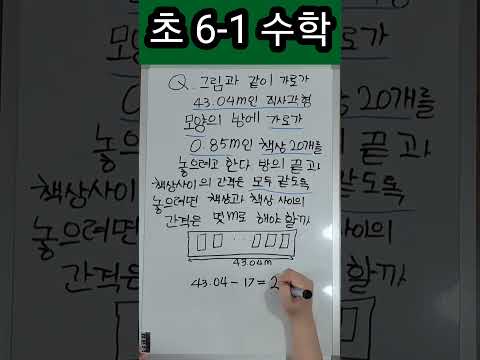 초 6-1 수학
Q. 그림과 같이 가로가
43.04m인 직사각형
모양의 방에 가로가
0.85m인 책상 20개를
놓으려고 한다 방의 끝과
책상사이의 간격은 모두 같도록
놓으려면 책상과 책상 사이의
간격은 몇 m로 해야 할까
43.04m
43.04 - 17 = 2